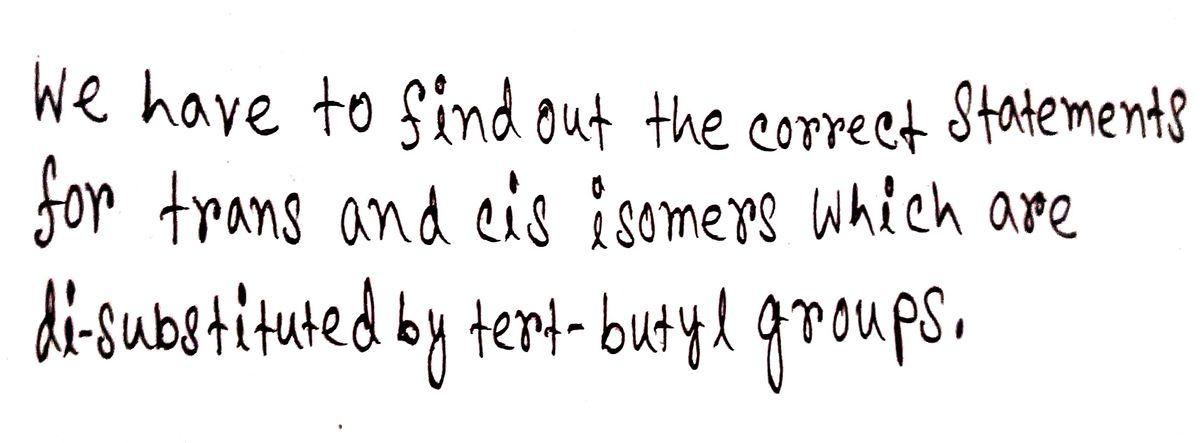 We have to find out the correct Statements
for trans and cis isomers which are
di-substituted by tert-butyl groups.